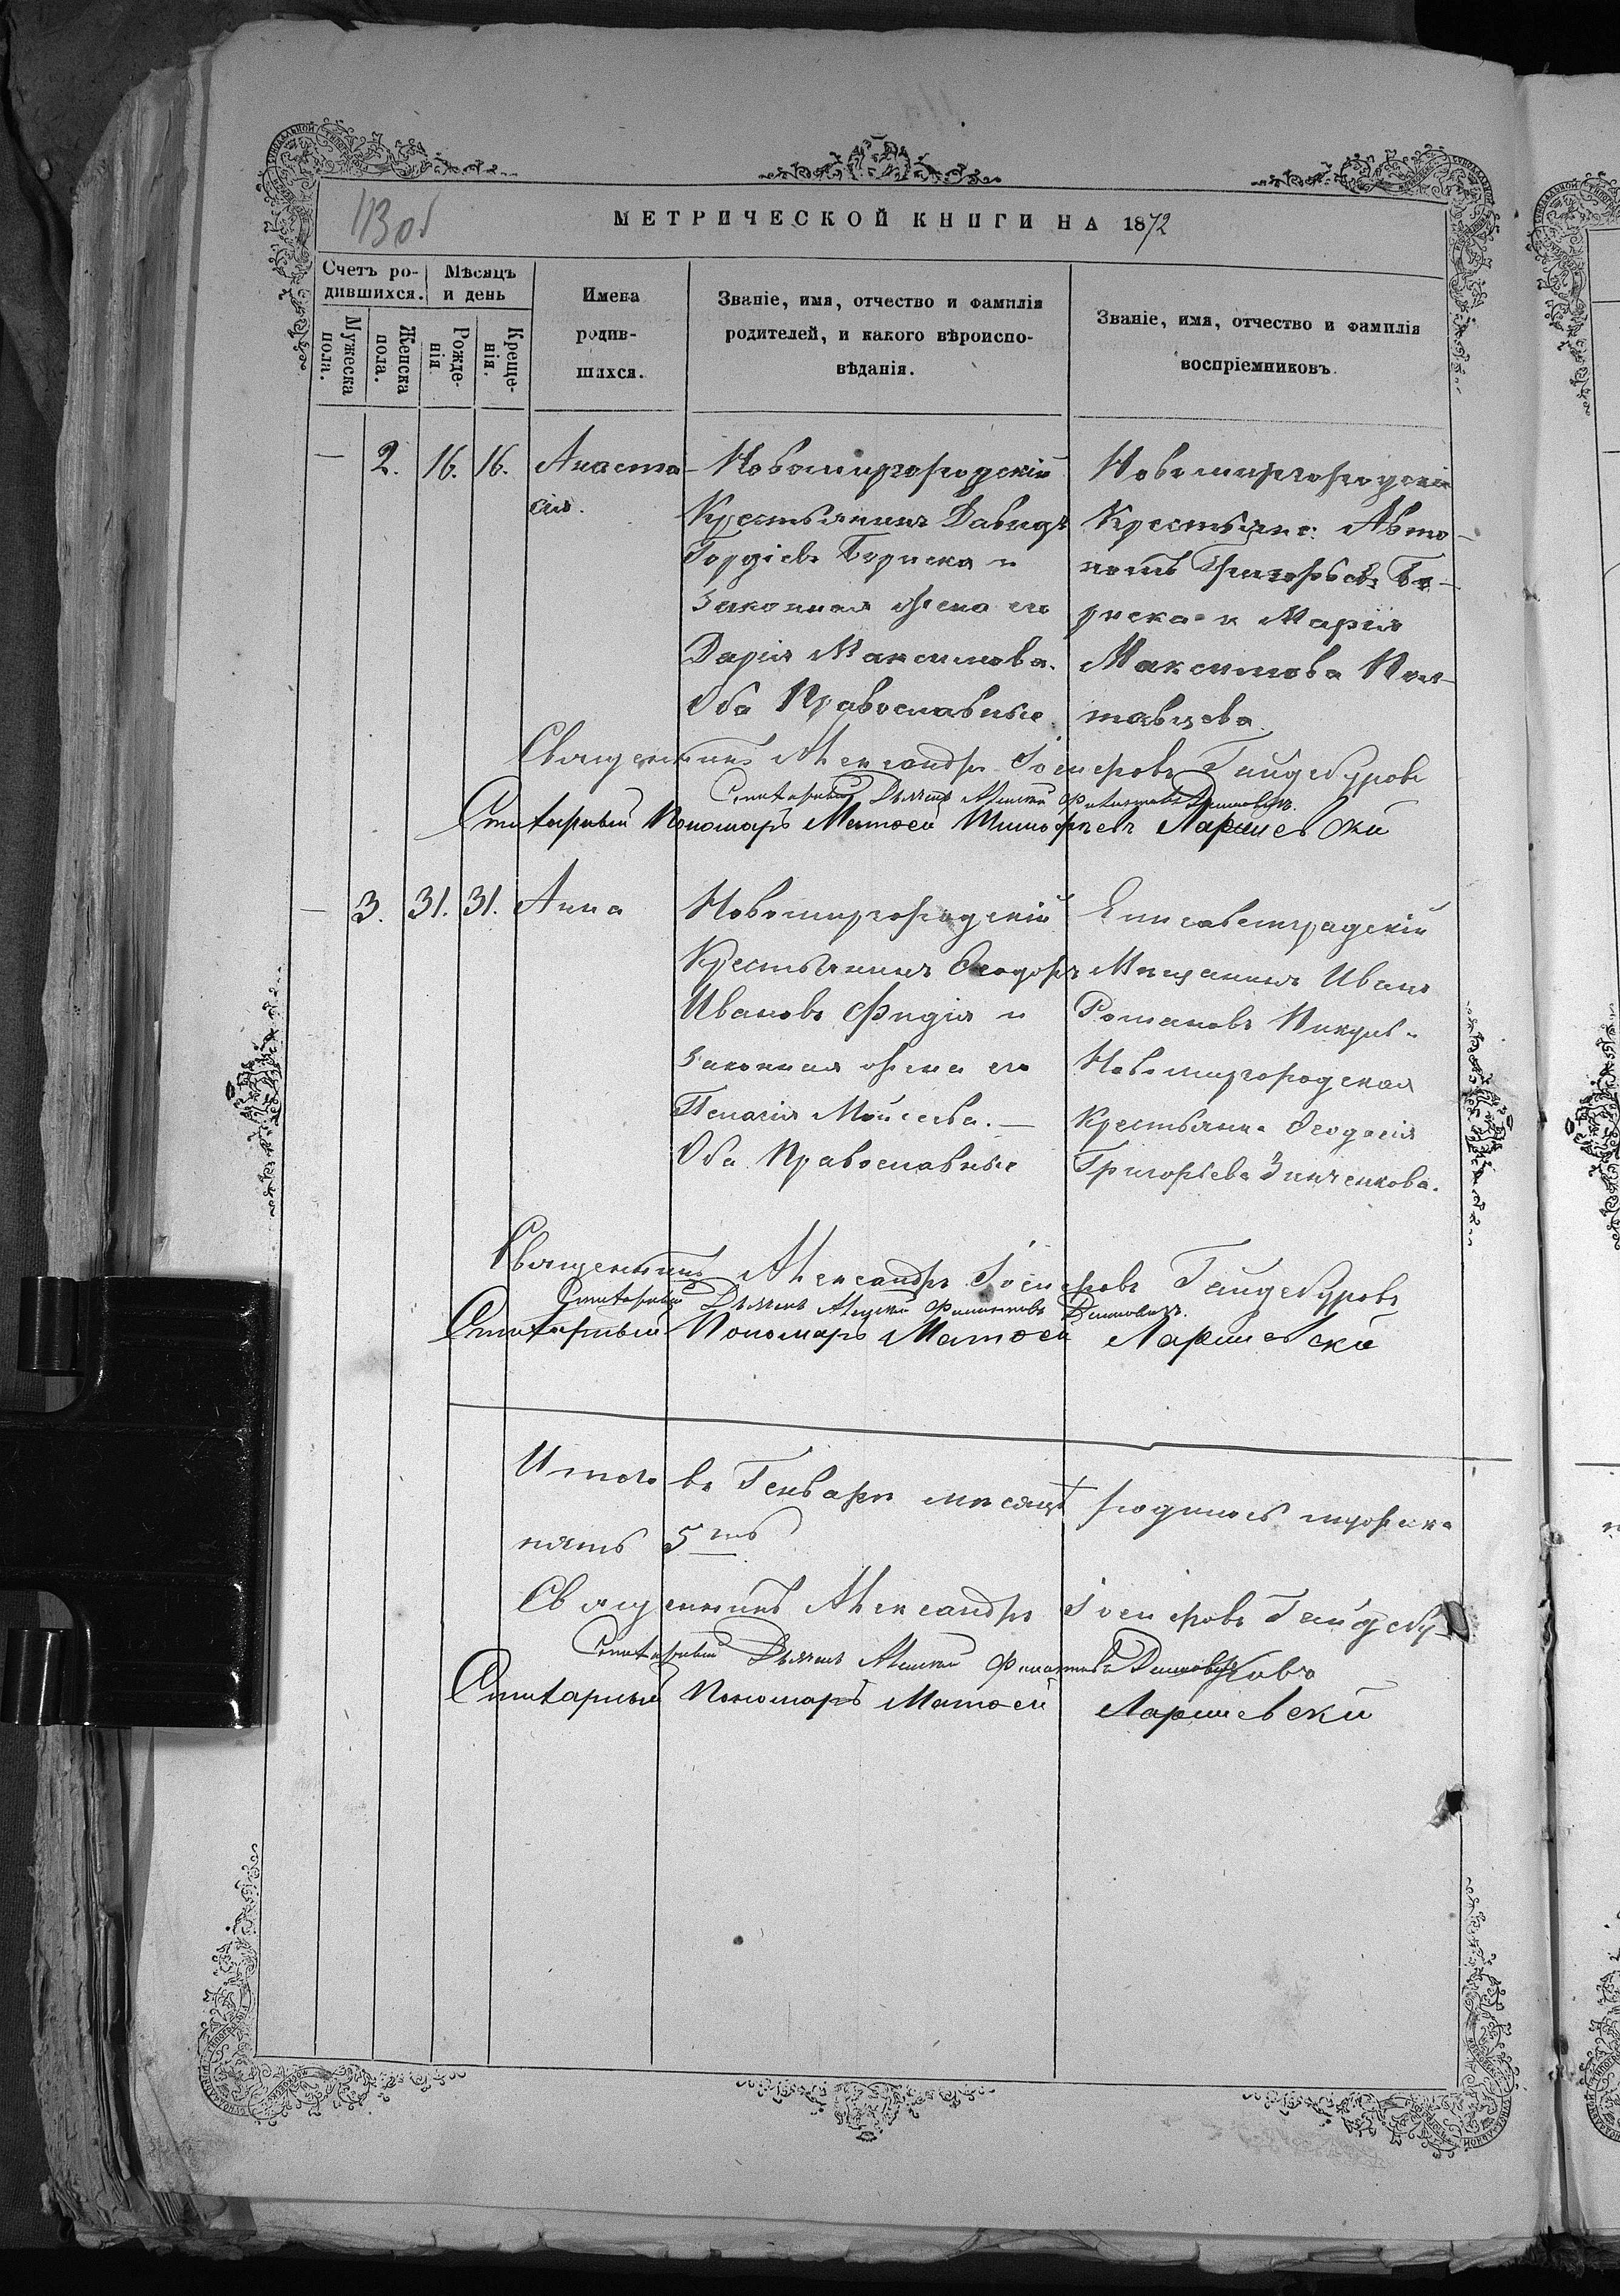 113 об
МЕТРИЧЕСКОЙ КНИГИ НА 1872
Счетъ родившихся.
Мужеска пола.
Женска пола.
Мѣсяцъ и день
Рожденія
Крещенія.
Имена родившихся.
Званіе, имя, отчество и фамилія
родителей, и какого вѣроиспо-
вѣданія.
Званіе, имя, отчество и фамилія
воспріемниковъ.
— 2. 16. 16. Анаста-
сія.
Новомиргородскій
Крестьянинъ Давидъ
Гордіевъ Буріска и
законная жена его
Дарія Максимова.
Оба Православные
Новомиргородскіе
Крестьяне: Авто-
номъ Григорьевъ Бу-
риска и Марія
Максимова Пол-
тавцева
Священникъ Александръ Іосифовъ Гайдебуровъ
Сштатный Дьячекъ Алексій
Сштатный Пономарь Матѳей Тимофѣевъ Ларшевскій
— 3. 31. 31. Анна
Новомиргородскій
Крестьянинъ Ѳеодоръ
Ивановъ Фидія и
законная жена его
Пелагія Моисеева. —
Оба Православные
Елисаветградскій
Мѣщанинъ Иванъ
Романовъ
Новомиргородская
Крестьянка Ѳеодосія
Григоріева Зинченкова.
Священникъ Александръ Іосифовъ Гайдебуровъ
Дьячекъ
Сштатный Пономарь Матѳей Ларшевскій
Итого въ Генварѣ мѣсяцѣ родилось
пять 5ть
Священникъ Александръ Іосифовъ Гайдебу-
ровъ
Дьячекъ
Сштатный Пономарь Матѳей Ларшевскій